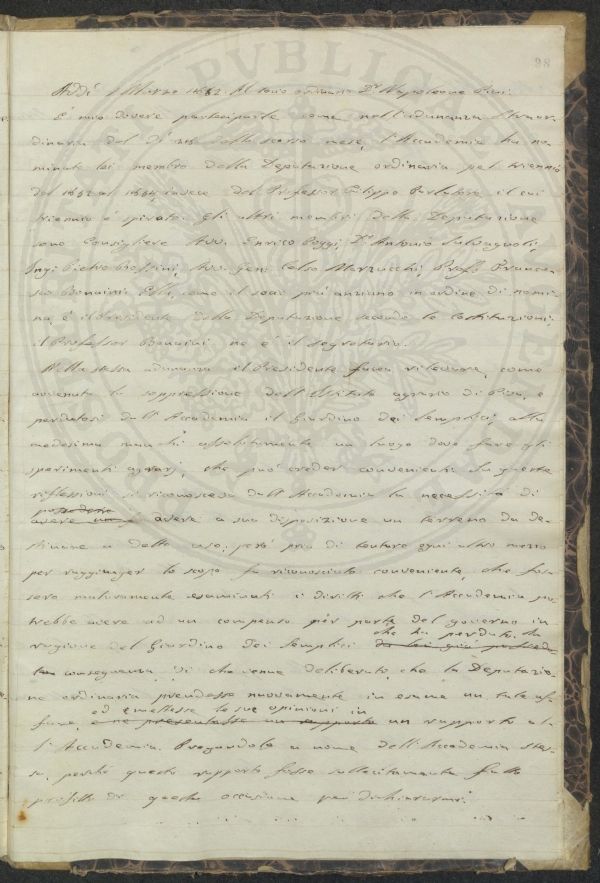 98
Addì Marzo 1852. Al socio ordinario Dr Napoleone Pini.
È mio dovere parteciparle come nell'adunanza straor-
dinaria del dì 28 dello scorso mese, l'Accademia ha no-
minato lei membro della Deputazione ordinaria pel triennio
dal 1852 al 1854, invece del Professor Filippo Parlatore il cui
triennio è spirato. Gli altri membri della Deputazione
sono Consigliere Avv. Enrico Poggi, Dr Antonio Salvagnoli,
Ing: Pietro Rossini, Avv. Gen. Celso Marzucchi, Prof. France-
sco Bonaini. Ella, come il socio più anziano in ordine di nomi-
na, è il Presidente della Deputazione secondo le Costituzioni;
il Professor Bonaini ne è il segretario.
Nella stessa adunanza il Presidente faceva rilevare, come
avvenuta la soppressione dell'Istituto agrario di Pisa, e
perdutosi dall'Accademia il Giardino dei Semplici, alla
medesima manchi assolutamente un luogo dove fare gli
sperimenti agrarj, che può creder convenienti. Su queste
riflessioni si riconosceva dall'Accademia la necessità di
possedere
avere a sua disposizione un terreno da de-
stinare a detto uso; però pria di tentare ogni altro mezzo
per raggiunger lo scopo fu riconosciuto conveniente, che fos-
sero maturamente esaminati i diritti che l'Accademia po-
trebbe avere ad un compenso per parte del governo in
che ha perduto. In
ragione del Giardino dei Semplici da lei già posseduto
conseguenza di che venne deliberato, che la Deputazio-
ne ordinaria prendesse nuovamente in esame un tale af-
ed emettesse le sue opinioni in
fare, e ne presentasse un rapporto un rapporto al-
l'Accademia. Pregandola a nome dell'Accademia stes-
sa, perchè questo rapporto fosse sollecitamente fatto
profitto di questa occasione per dichiararmi